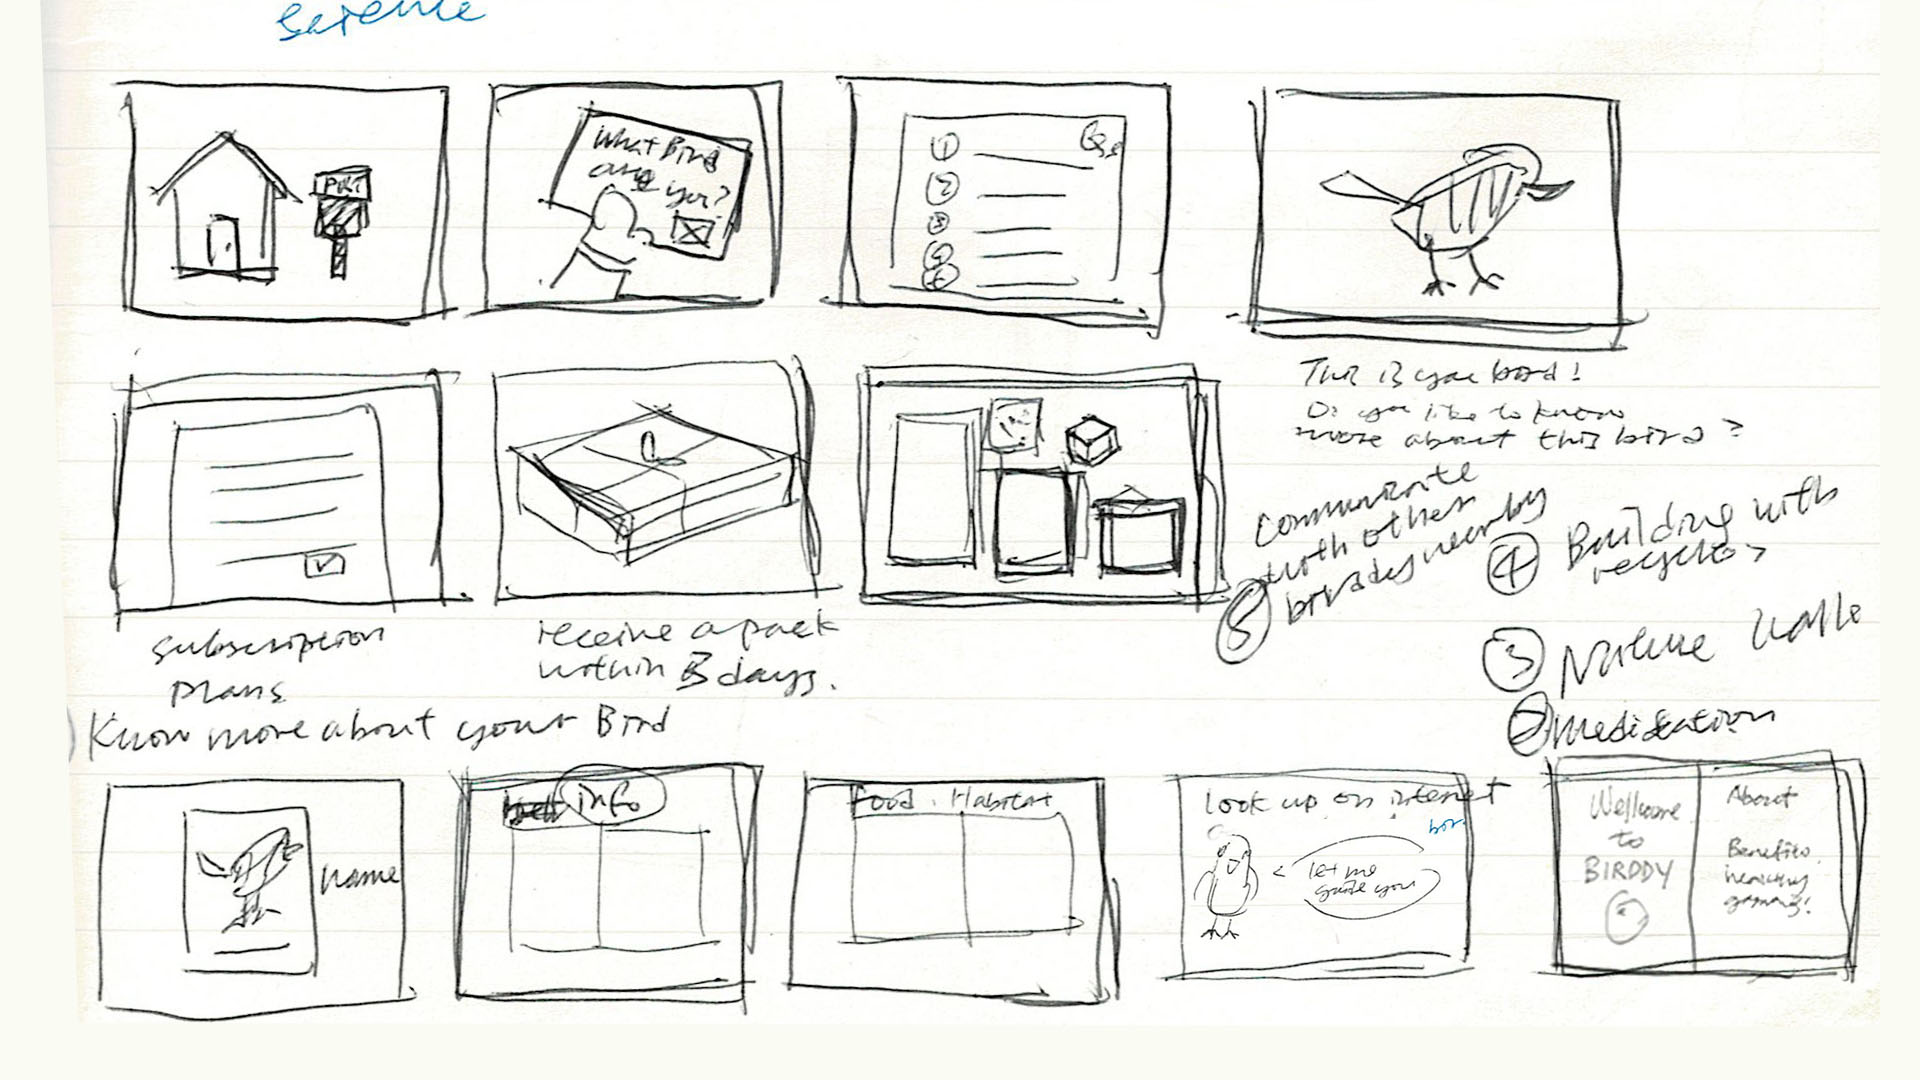 What Bird
are you?
Qs
1
2
3
4
5
This is your bird!
Do you like to know
more about this bird?
subscription
plans
receive a pack
within 3 days.
Communicate
with other
nearby
5
4 Building with
3 Nature Walk
2 Meditation
Know more about your Bird
name
info
Food . Habitat
Look up on internet
let me
guide you
Wellcome
to
BIRDDY
About
Benefits